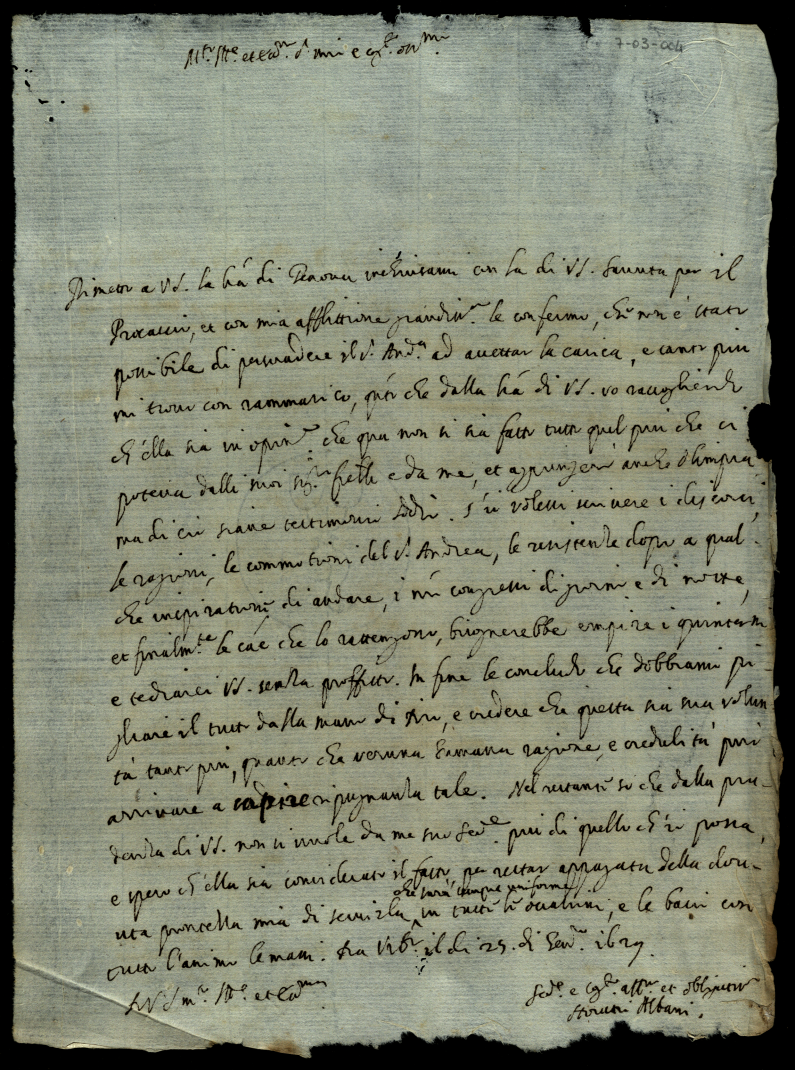 7-03-004
Mto. Ille. et Ecc. S. mio e
Rimetto a VS. la tra di inchiusami con la di VS. per il
Procaccio, et con mia afflittione grandissa. le confermo, che non è stato
possibile di persuadere il S. Anda. ad accettar la carica, e tanto più
mi trovo con rammarico, qto che dalla tra di VS. vo raccogliendo
ch'ella sia in opinne. che qua non si sia fatto tutto quel più che si
poteva dalli suoi sigri. fratelli e da me, et aggiungerò anche Olimpia
ma di ciò siane testimonio Iddio. S'io volessi scrivere i discorsi,
le ragioni, le commotioni del S. Andrea, le resistenze dopo a qual-
che inspiratione di andare, i nri congressi di giorno e di notte,
et finalmte. le cae che lo rattengono, bisognerebbe empire i quinterni
e tediarci VS. senza proffitto. In fine le concludo che dobbiamo pi-
gliare il tutto dalla mano di Dio, e credere che questa sia sua volun-
tà tanto più, quanto che veruna humana ragione, e credulità può
arrivare a capire ripugnanza tale. Nel restante so che dalla pru-
denza di VS. non si vuole da me suo Sede. più di quello ch'io possa,
e spero ch'ella sia considerato il fatto per restar appagata della
prontezza mia di servirla, che sarà sempre uniforme in tutte le occasioni, e le bacio con
tutto l'animo le mani. Da Urbo. il di 25. di Genro. 1629.
Di VS mto. Ille. et Ecc.
Sede. e affmo. et obligatmo
Horatio Albani.